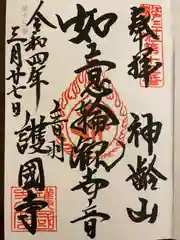 奉拝
神齢山
如意輪観世音
音羽
護國寺
令和四年
三月廿七日